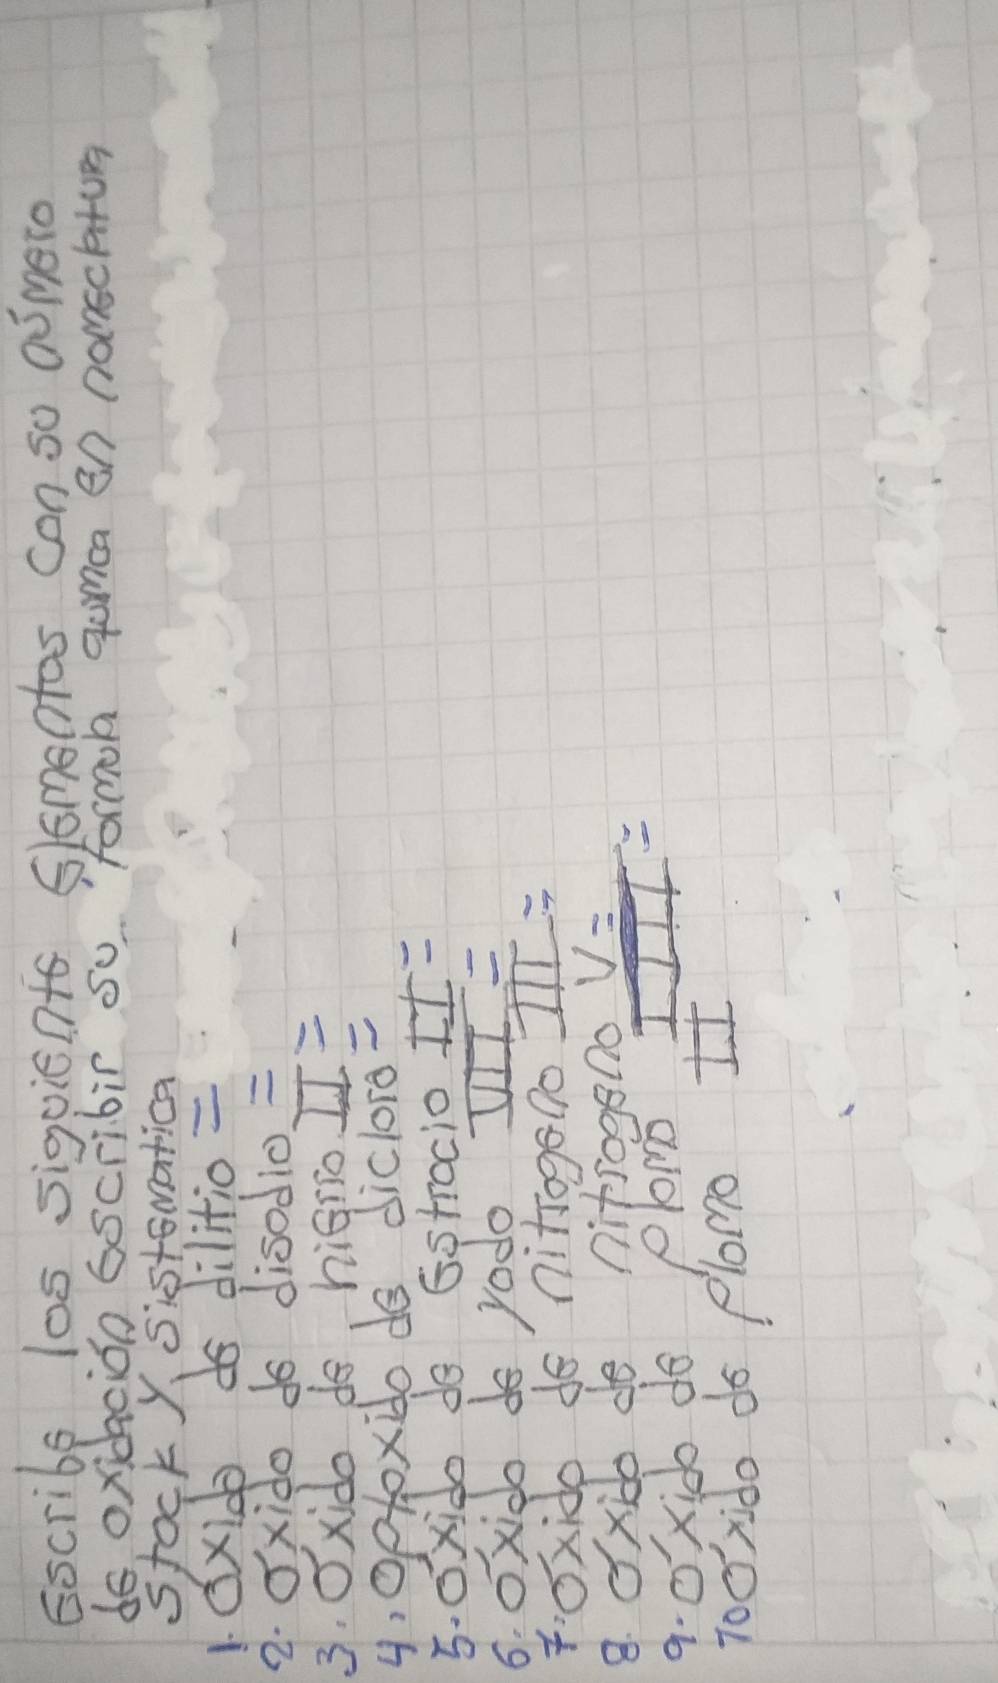 Escribe los siguiente elementos con su número
de oxidación escribir su formula qumca en nomeclatura
stock y sistematica
1. Óxido de dilitio =
2. Óxido de disodio =
3. Óxido de hierro II =
4. Optoxido de dicloro =
5. Óxido de estrocio II =
6. Óxido de yodo VII =
7. Óxido de nitrogeno III =
8. Óxido de nitrogeno V =
9. Óxido de plomo =
10 Óxido de plomo II